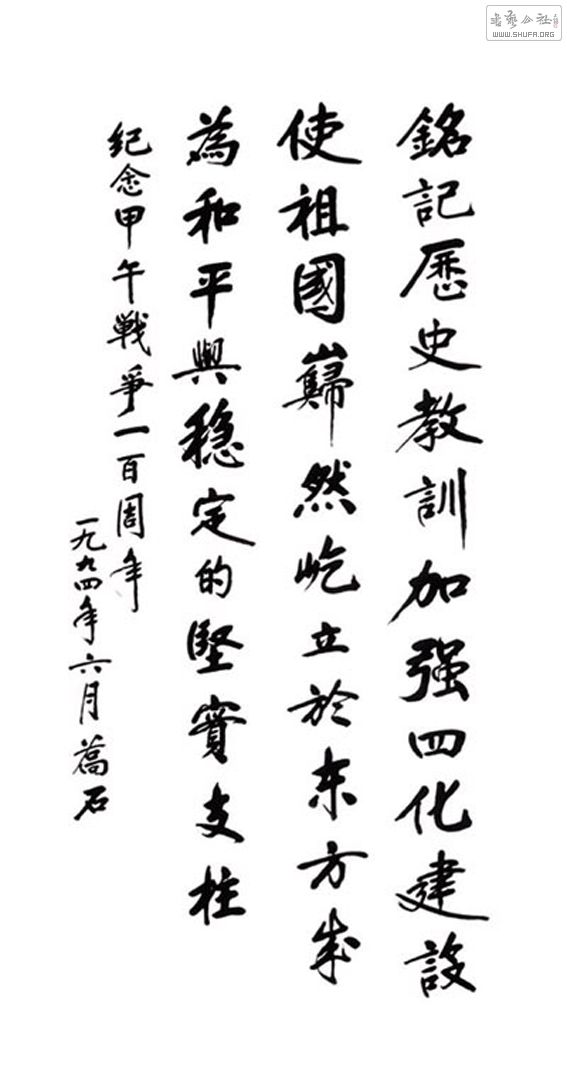 銘記歷史教訓加强四化建設
使祖國巋然屹立於东方成
為和平與稳定的堅實支柱
纪念甲午戰爭一百周年
一九九四年六月 喬石
书艺公社
WWW.SHUFA.ORG